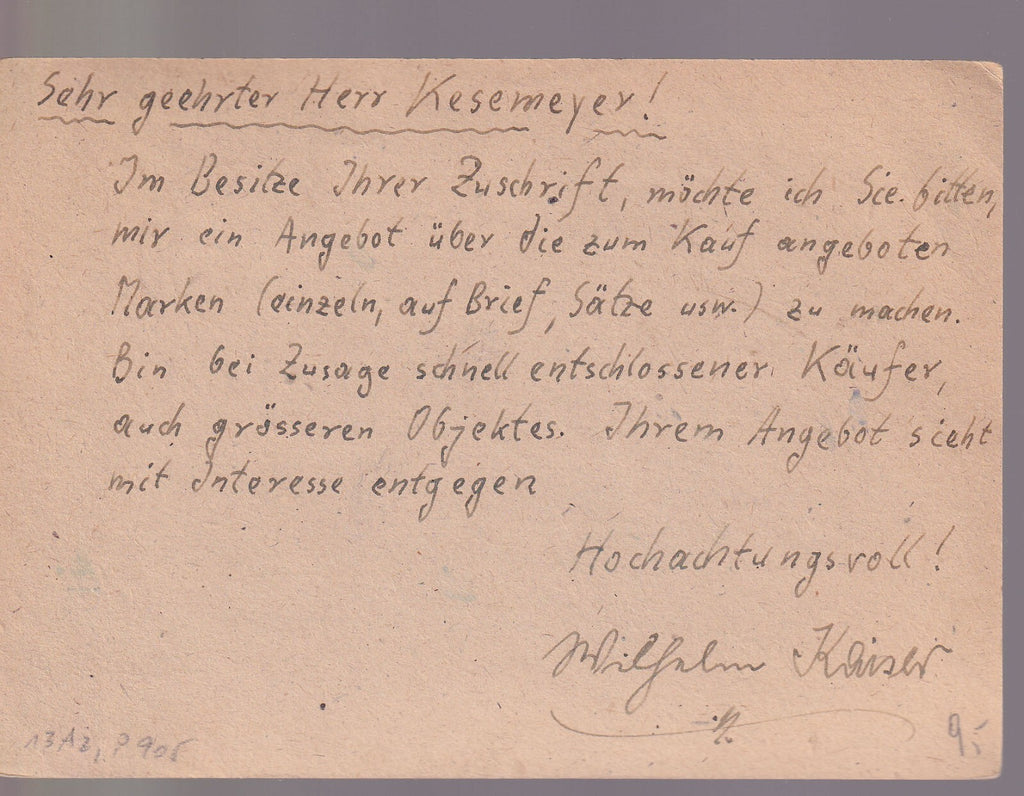 Sehr geehrter Herr Kesemeyer!
Im Besitze Ihrer Zuschrift, möchte ich Sie bitten,
mir ein Angebot über die zum Kauf angeboten
Marken (einzeln, auf Brief, Sätze usw.) zu machen.
Bin bei Zusage schnell entschlossener Käufer,
auch grösseren Objektes. Ihrem Angebot sieht
mit Interesse entgegen
Hochachtungsvoll!
Wilhelm Kaiser
9,-